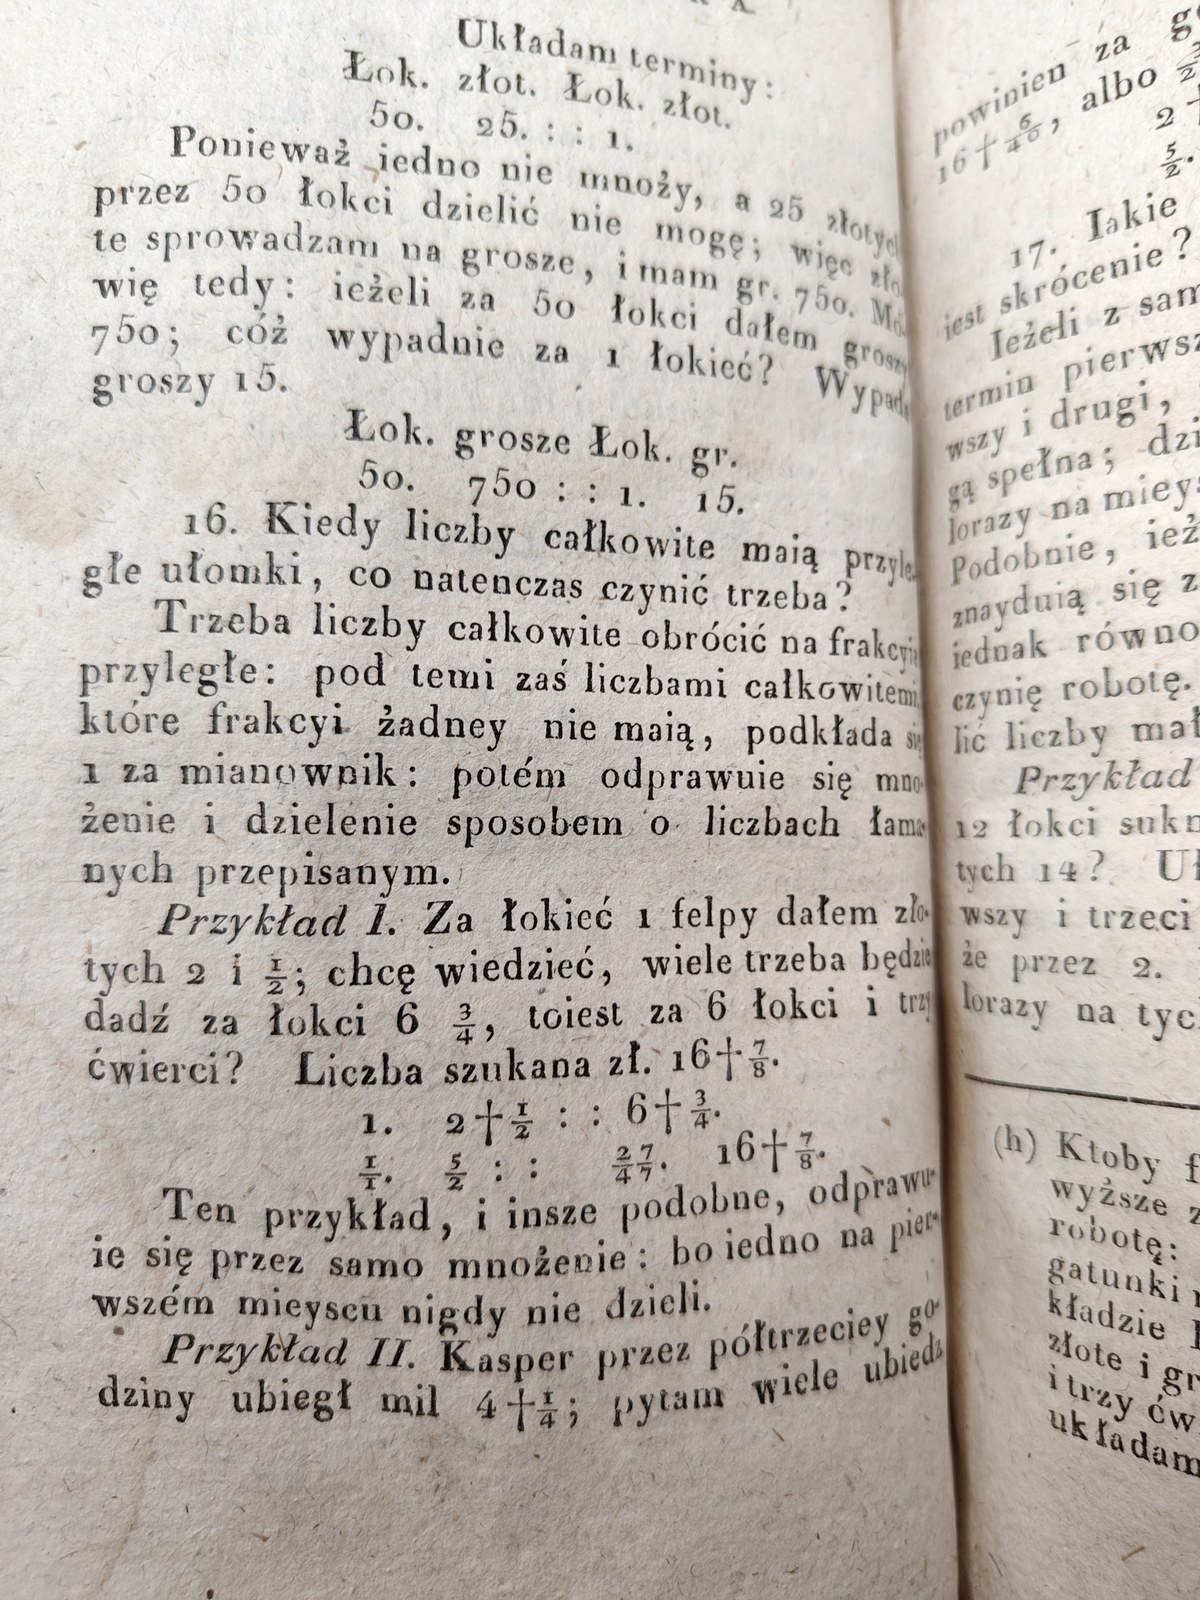 Układam terminy:
Łok. złot. Łok. złot.
50. 25. : : 1.
Ponieważ iedno nie mnoży, a 25 złotych
przez 50 łokci dzielić nie mogę; więc zło-
te sprowadzam na grosze, i mam gr. 750. Mó-
wię tedy: ieżeli za 50 łokci dałem groszy
750; cóż wypadnie za 1 łokieć? Wypada
groszy 15.
Łok. grosze Łok. gr.
50. 750 : : 1. 15.
16. Kiedy liczby całkowite maią przyle-
głe ułomki, co natenczas czynić trzeba?
Trzeba liczby całkowite obrócić na frakcyią
przyległe: pod temi zaś liczbami całkowitemi,
które frakcyi żadney nie maią, podkłada się
1 za mianownik: potém odprawuie się mno-
żenie i dzielenie sposobem o liczbach łama-
nych przepisanym.
Przykład I. Za łokieć 1 felpy dałem zło-
tych 2 i 1/2; chcę wiedzieć, wiele trzeba będzie
dadź za łokci 6 3/4, toiest za 6 łokci i trzy
ćwierci? Liczba szukana zł. 16†7/8.
1. 2†1/2 : : 6†3/4.
1/1. 5/2 : : 27/47. 16†7/8.
Ten przykład, i insze podobne, odprawu-
ie się przez samo mnożenie: bo iedno na pier-
wszém mieyscu nigdy nie dzieli.
Przykład II. Kasper przez półtrzeciey go-
dziny ubiegł mil 4†1/4; pytam wiele ubiedz
powinien za
16†6/40, albo
2
5/2.
17. Iakie
iest skrócenie?
Ieżeli z sam
termin pierwsz
wszy i drugi,
gą spełna; dzi
lorazy na mieys
Podobnie, ież
znayduią się z
iednak równo
czynię robotę.
lić liczby mał
Przykład
12 łokci sukn
tych 14? Uł
wszy i trzeci
że przez 2.
lorazy na tyc
(h) Ktoby f
wyższe z
robotę:
gatunki
kładzie
złote i gr
i trzy ćw
układam